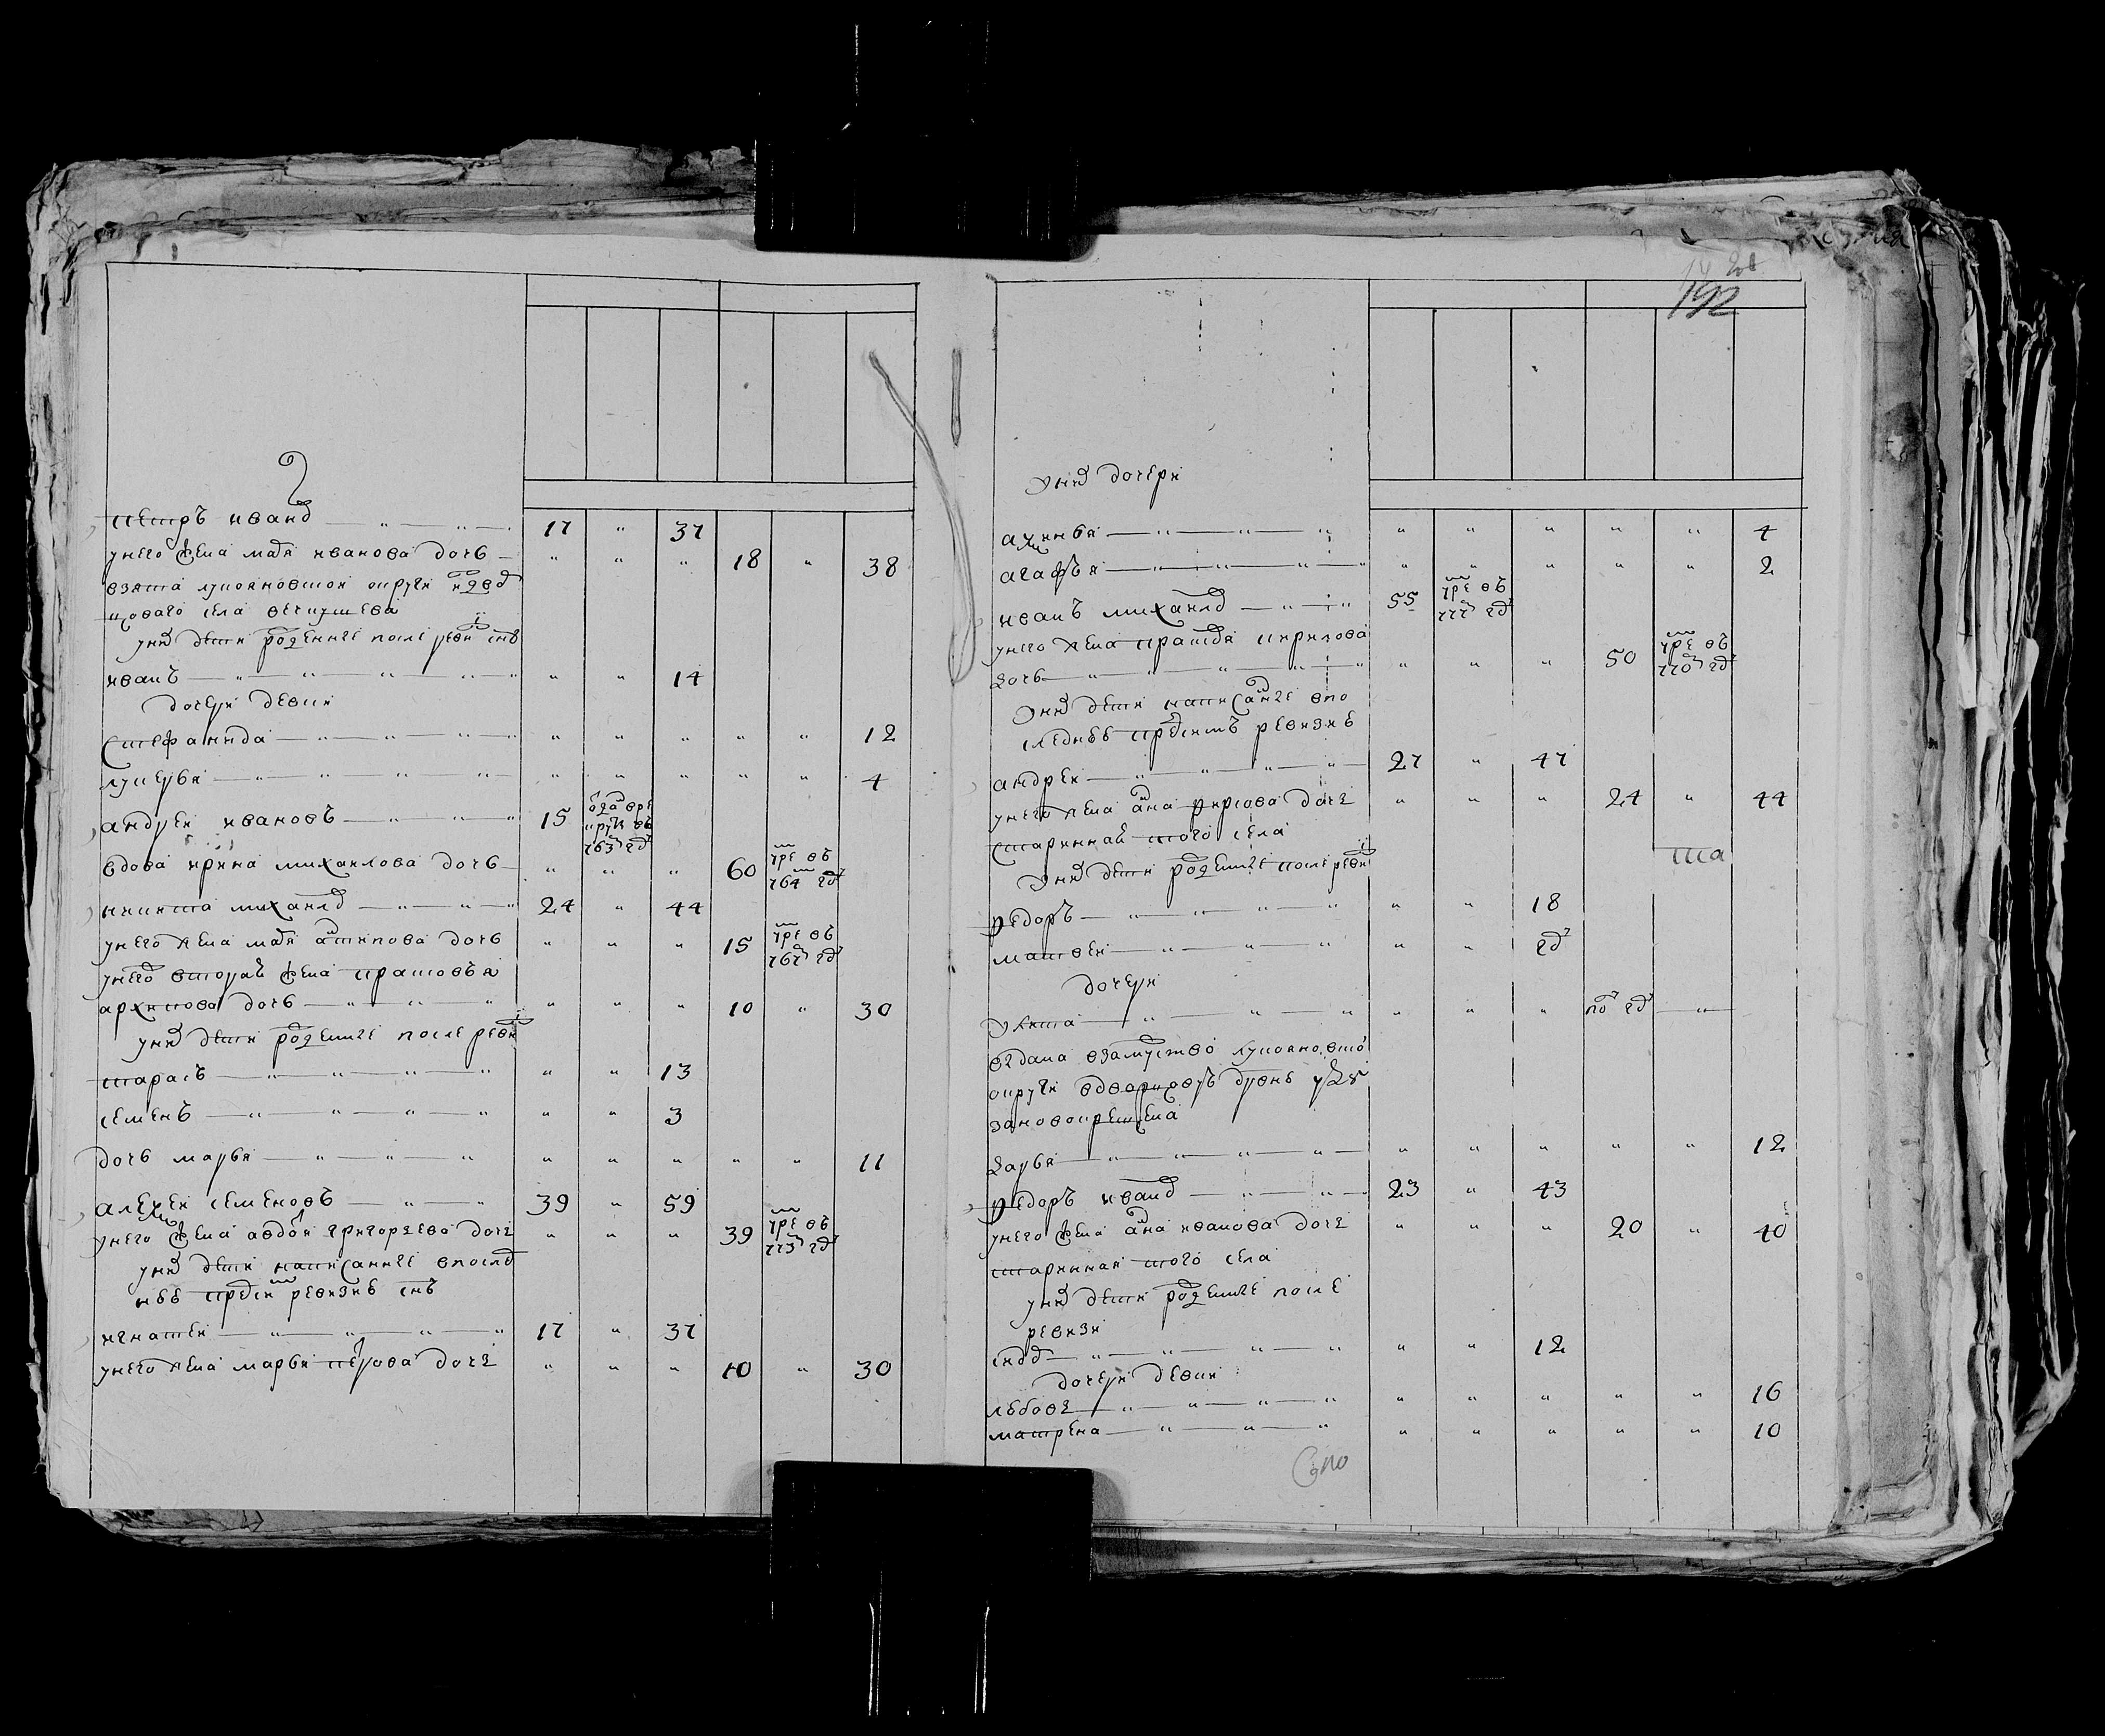 петръ иванов — 17 " 37
унего жена маря иванова дочь — " " " 18 " 38
взята лукояновской округи
села
уних дети рожденные после реви снъ
иванъ — " " 14
дочери девки
стефанида — " " " " " 12
лукерья — " " " " " 4
андрей ивановъ — 15 763 гд
вдова ирина михаилова дочь — " " " 60 умре въ 764 гд
никита михаилов — 24 " 44
унего жена маря антипова дочь " " " 15 умре въ 767 гд
унего вторая жена прасковья
архипова дочь — " " " 10 " 30
уних дети рожденные после реви
тарасъ — " " 13
семенъ — " " 3
дочь марья — " " " " " 11
алексеи семеновъ — 39 " 59
унего жена авдотя григорьева дочь " " " 39 умре въ 773 гд
уних дети написанные впослед
нею пред сим ревизию снъ
игнатей — 17 " 37
унего жена марья петрова дочь " " " 10 " 30
192
Уних дочери
аксинья — " " " " " 4
агафья — " " " " " 2
иванъ михаилов — 55 умре въ 777 гд
унего жена прасковя кирилова
дочь — " " " 50 умре въ 770 гд
Уних дети написанные впо
следнею пред симъ ревизию
андреи — 27 " 47
унего жена анна фирсова дочь " " " 24 " 44
старинная того села
Уних дети рожденные после реви
федоръ — " " 18
матвеи — " " гд
дочери
Улита — " " " по гд "
выдана взамужство лукояновской
округи
новокрещена
дарья — " " " " " 12
федоръ иванов — 23 " 43
унего жена анна иванова дочь " " " 20 " 40
старинная того села
уних дети рожденные после
ревизи
сидор — " " 12
дочери девки
любовь — " " " " " 16
матрена — " " " " " 10